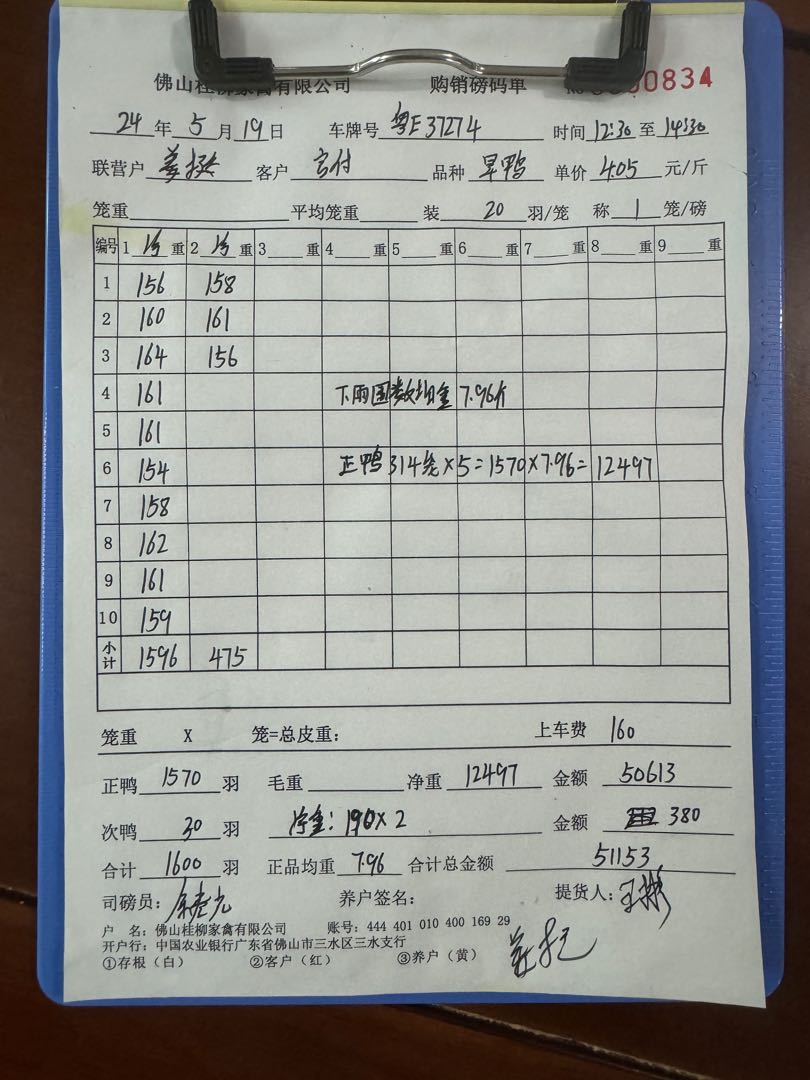 佛山桂柳家禽有限公司 购销磅码单 0834
24 年 5 月 19 日 车牌号 粤E37274 时间 12:30 至 14:30
联营户 客户 品种 旱鸭 单价 4.05 元/斤
笼重 平均笼重 装 20 羽/笼 称 1 笼/磅
编号 1 净 重 2 净 重 3 重 4 重 5 重 6 重 7 重 8 重 9 重
1 156 158
2 160 161
3 164 156
4 161 下雨 7.96斤
5 161
6 154 正鸭 314 ×5=1570×7.96=12497
7 158
8 162
9 161
10 159
小计 1596 475
笼重 X 笼=总皮重: 上车费 160
正鸭 1570 羽 毛重 净重 12497 金额 50613
次鸭 30 羽 净重: 190×2 金额 380
合计 1600 羽 正品均重 7.96 合计总金额 51153
司磅员: 养户签名: 提货人:
户 名: 佛山桂柳家禽有限公司 账号: 444 401 010 400 169 29
开户行: 中国农业银行广东省佛山市三水区三水支行
①存根（白） ②客户（红） ③养户（黄）